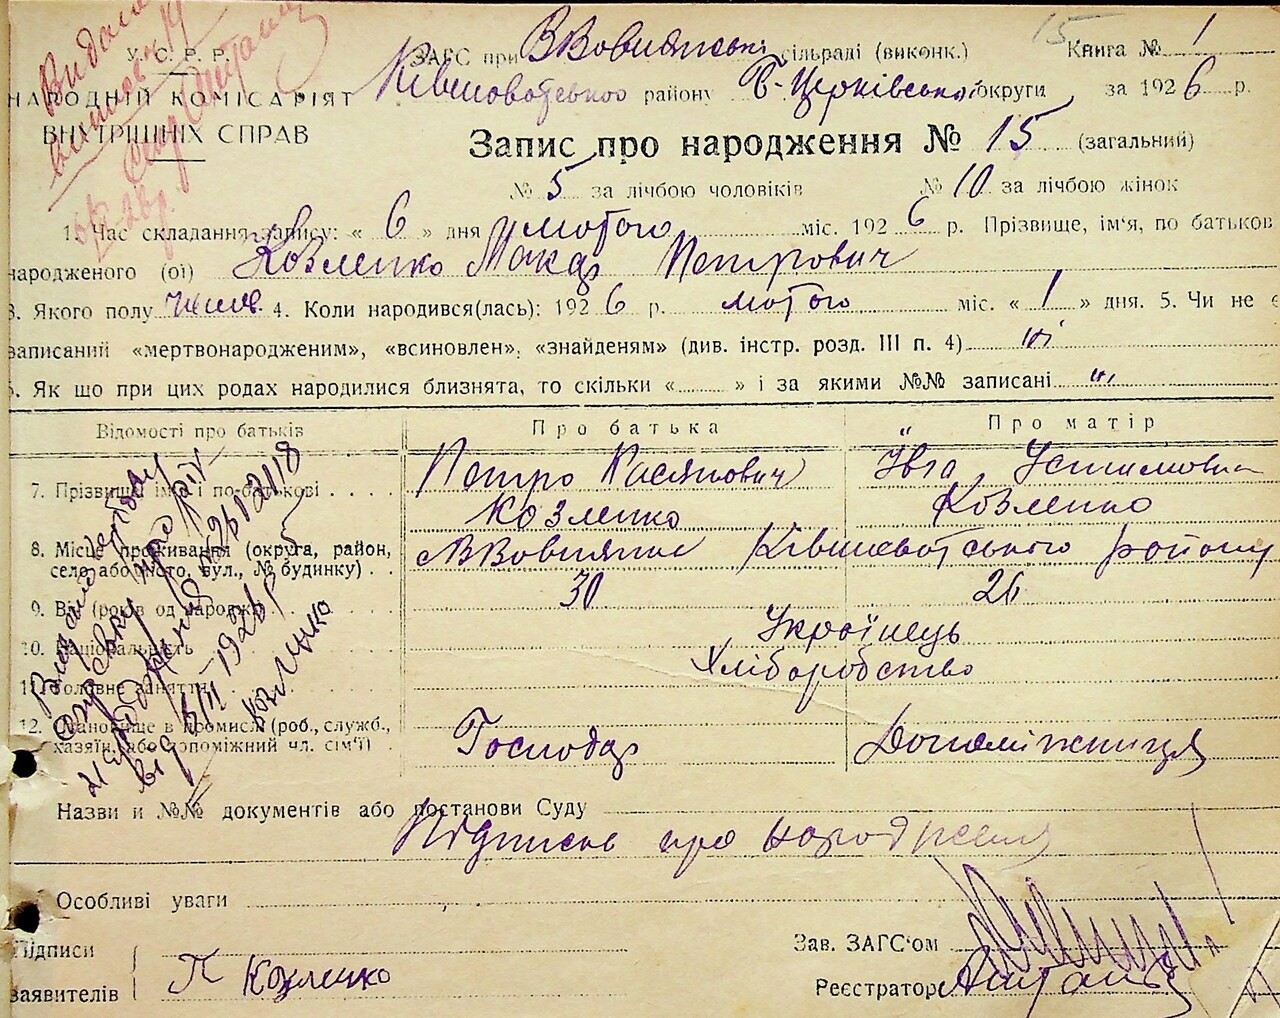 У. С. Р. Р. ЗАГС при ВВовнянські сільраді (виконк.) 15 Книга № 1
НАРОДНІЙ КОМІСАРІЯТ Ківшоватського району Б-Церківської округи за 1926 р.
ВНУТРІШНІХ СПРАВ
Запис про народження № 15 (загальний)
№ 5 за лічбою чоловіків № 10 за лічбою жінок
1. Час складання запису: « 6 » дня лютого міс. 1926 р. Прізвище, ім'я, по батьков
народженого (ої) Козленко Макар Петрович
3. Якого полу чолов. 4. Коли народився(лась): 1926 р. лютого міс. « 1 » дня. 5. Чи не є
записаний «мертвонародженим», «всиновлен», «знайденям» (див. інстр. розд. III п. 4) ні
6. Як що при цих родах народилися близнята, то скільки « » і за якими №№ записані
Відомості про батьків Про батька Про матір
7. Прізвище ім'я і по-батькові Петро Касянович Ївга Устимовна
Козленко Козленко
8. Місце проживання (округа, район, ВВовнянка Ківшоватського району
село або місто, вул., № будинку)
9. Вік (років од народж.) 30 26
10. Національність Українець
11. Головне заняття Хліборобство
12. Становище в промислі (роб., служб., Господар Допоміжниця
хазяїн, або допоміжний чл. сім'ї)
Назви и №№ документів або постанови Суду
Підписка про народження
Особливі уваги
Підписи Зав. ЗАГС'ом
заявителів П Козленко Реєстратор
Видано
Козленко